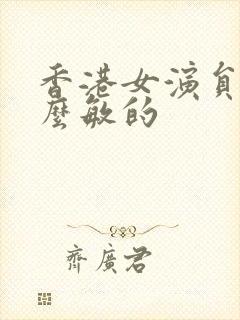 香港女演員
麼敏的
齊廣君